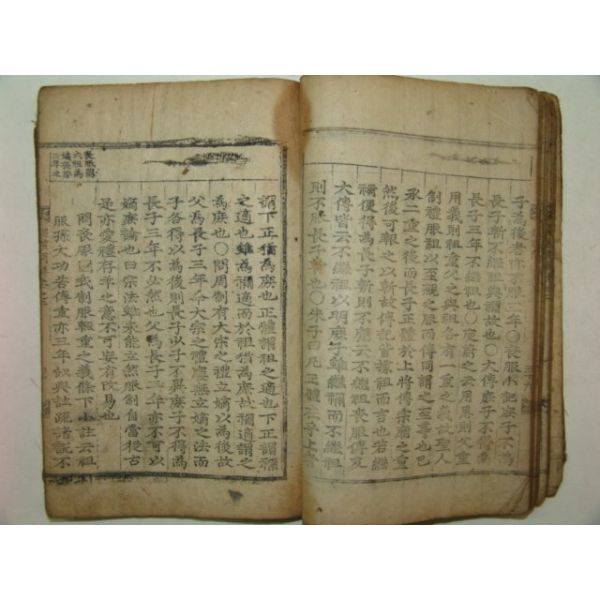 子爲後者亦服三年○喪服小記庶子不爲
長子斬不繼祖與禰故也○大傳庶子不得爲
長子三年不繼祖也○庾蔚之云用恩則父重
用義則祖重父之與祖各有一重之義故聖人
制禮服祖以至親之服而傳同謂之至尊也已
承二重之後而長子正體於上將傳宗廟之重
然後可報之以斬故傳記皆據祖而言也若繼
禰便得爲長子斬則不應云不繼祖喪服傳及
大傳皆云不繼祖以明庶子雖繼禰而不繼祖
則不服長子斬也○朱子曰凡正體在乎上者
謂下正猶爲庶也正體謂祖之適也下正謂禰
之適也雖爲禰適而於祖猶爲庶故禰適謂之
爲庶也○問周制有大宗之禮立嫡以爲後故
父爲長子三年今大宗之禮廢無立嫡之法而
子各得以爲後則長子少子不異庶子不得爲
長子三年不必然也父爲長子三年亦不可以
嫡庶論也曰宗法雖未能立然服制自當從古
是亦愛禮存羊之意不可妄有改易也
問喪服圖式制服輕重之義條下小註云祖
服孫大功若傳重亦三年似與註疏諸說不
喪服圖
式祖爲
嫡孫